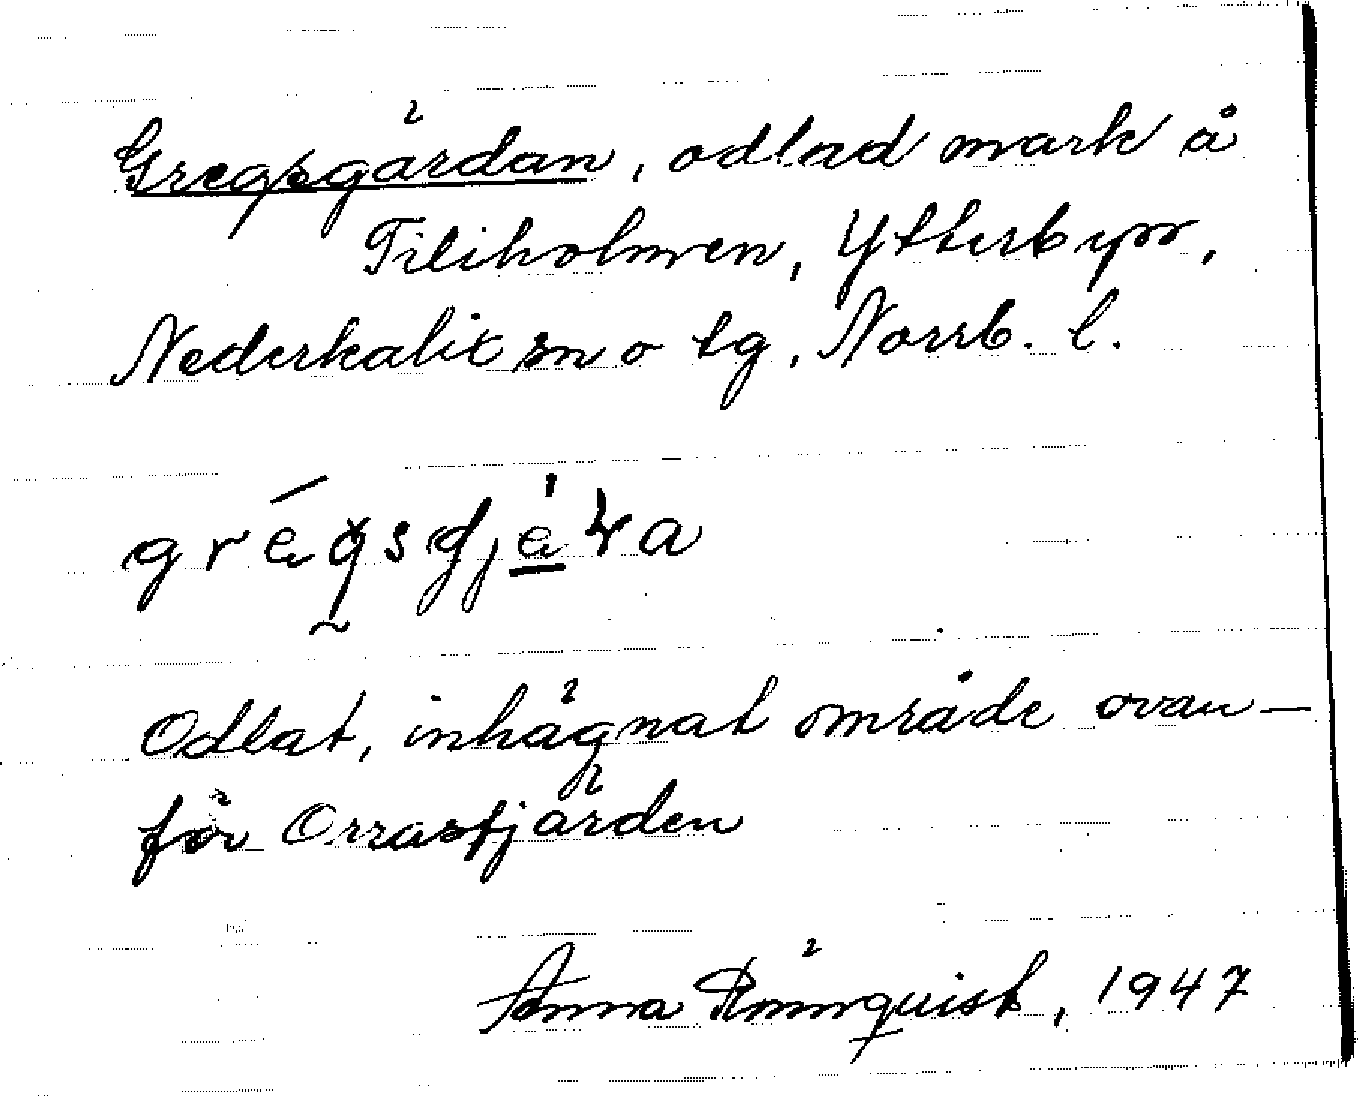 Gregsgärdan, odlad mark å
Filiholmen, Ytterbyn,
Nederkalix sn o tg, Norrb. l.
Odlat, inhägnat område ovan-
för Orrasfjärden
Anna Rönnquist, 1947